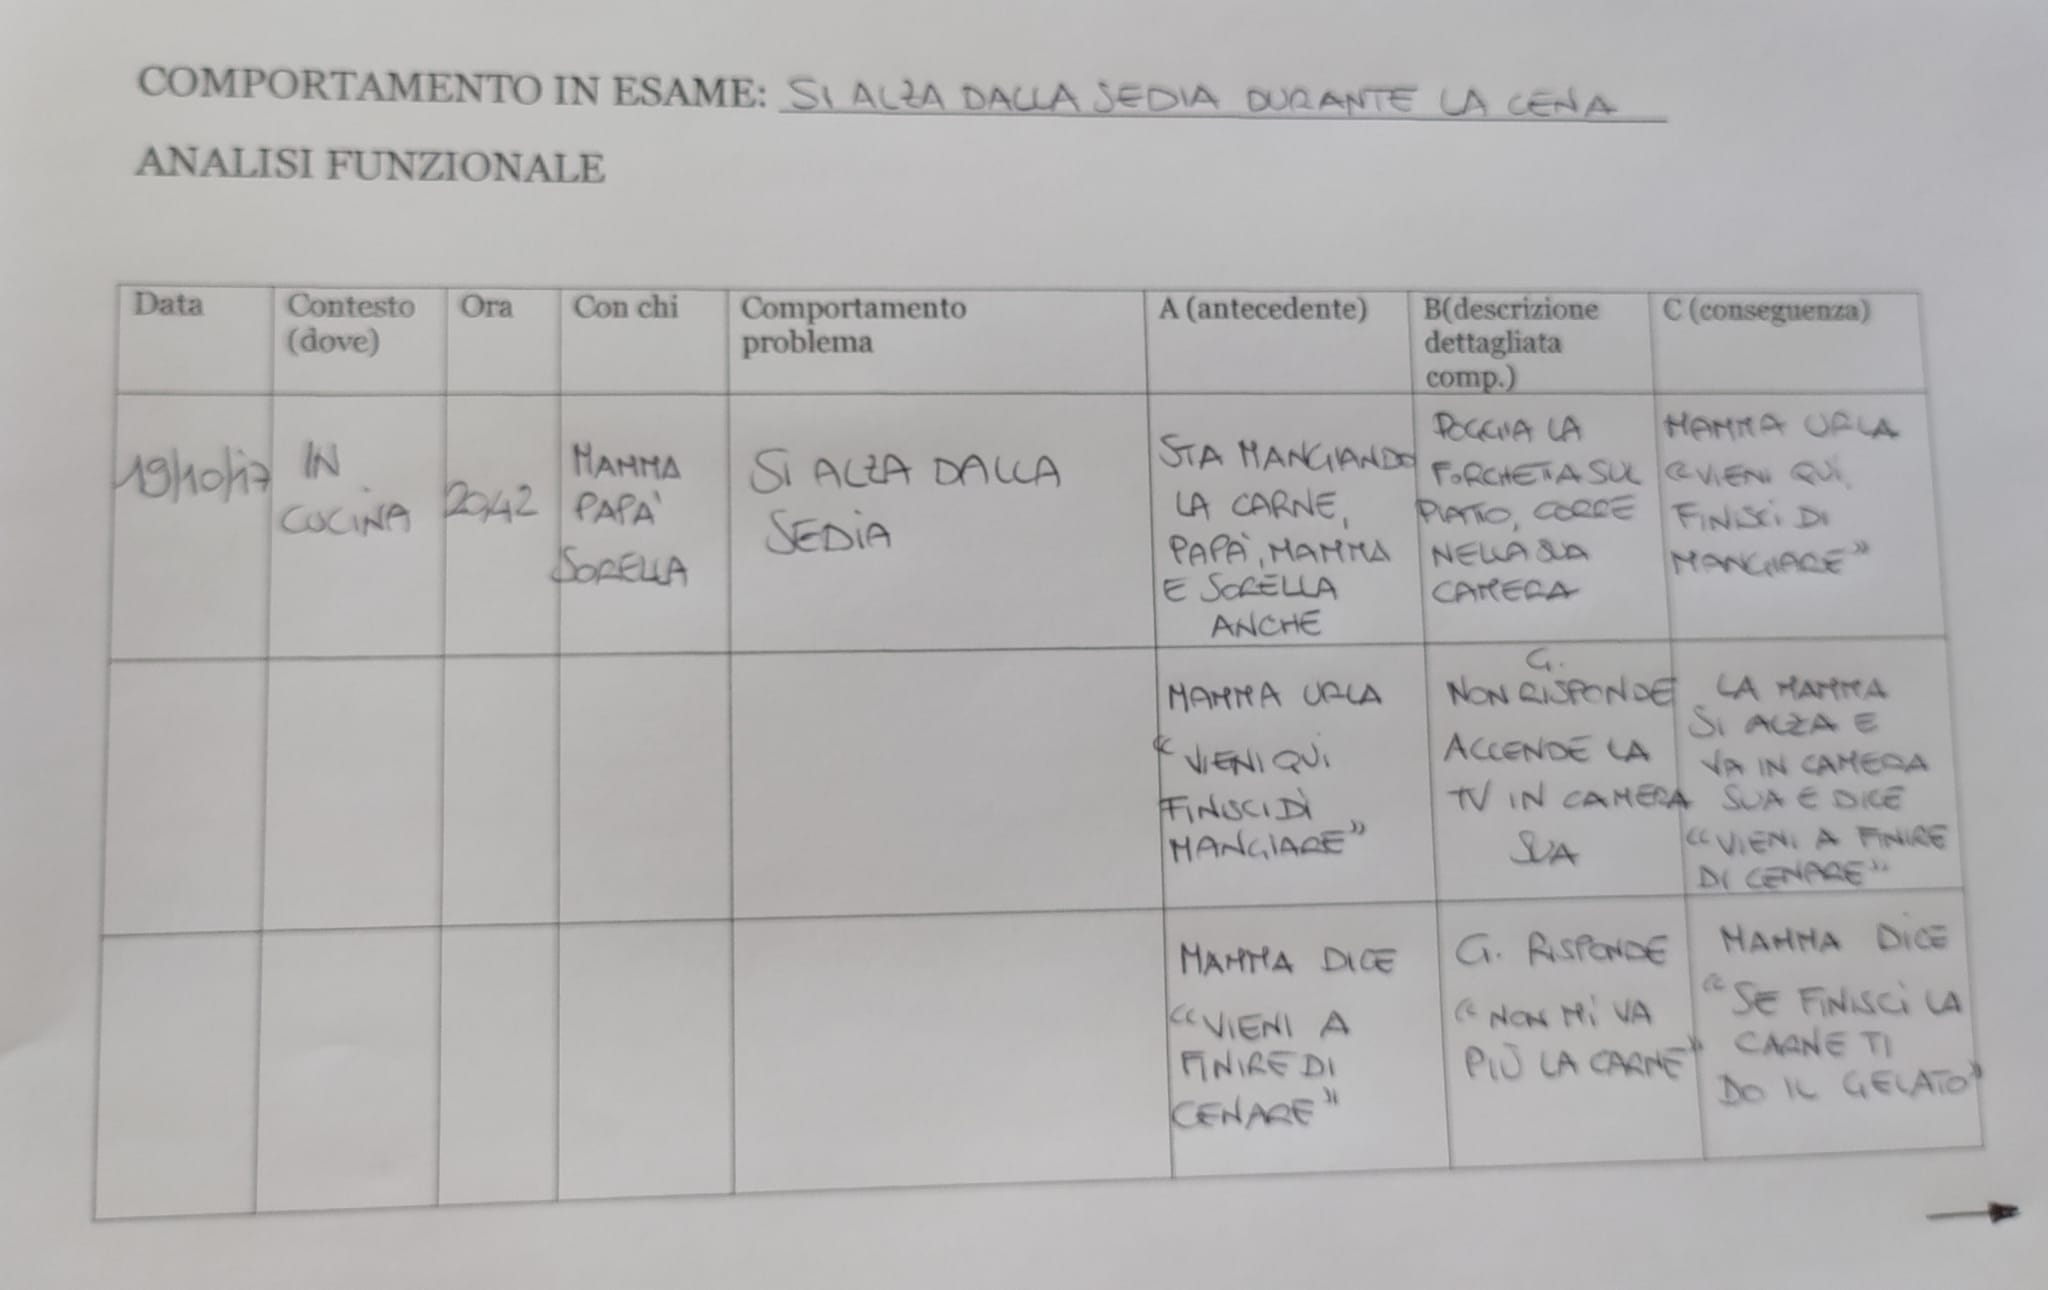 COMPORTAMENTO IN ESAME: SI ALZA DALLA SEDIA DURANTE LA CENA
ANALISI FUNZIONALE
Data
Contesto
(dove)
Ora
Con chi
Comportamento
problema
A (antecedente)
B(descrizione
dettagliata
comp.)
C (conseguenza)
19/10/17
IN
CUCINA
20,42
MAMMA
PAPA'
SORELLA
SI ALZA DALLA
SEDIA
STA MANGIANDO
LA CARNE,
PAPA', MAMMA
E SORELLA
ANCHE
POGGIA LA
FORCHETTA SUL
PIATTO, CORRE
NELLA SUA
CAMERA
MAMMA URLA
"VIENI QUI,
FINISCI DI
MANGIARE"
MAMMA URLA
"VIENI QUI
FINISCI DI
MANGIARE"
G.
NON RISPONDE
ACCENDE LA
TV IN CAMERA
SUA
LA MAMMA
SI ALZA E
VA IN CAMERA
SUA E DICE
"VIENI A FINIRE
DI CENARE"
MAMMA DICE
"VIENI A
FINIRE DI
CENARE"
G. RISPONDE
"NON MI VA
PIÙ LA CARNE"
MAMMA DICE
"SE FINISCI LA
CARNE TI
DO IL GELATO"